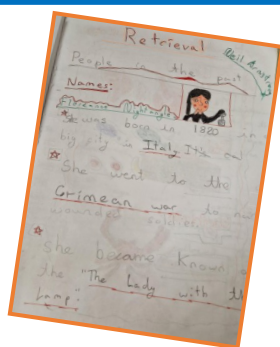 Retrieval
Neil Armstrong
People in the past
Names:
Florence Nightingale
She was born in 1820 in a
big city in Italy. It's
She went to the
Crimean war to
wounded soldiers
She became known
the "The Lady with the
Lamp."